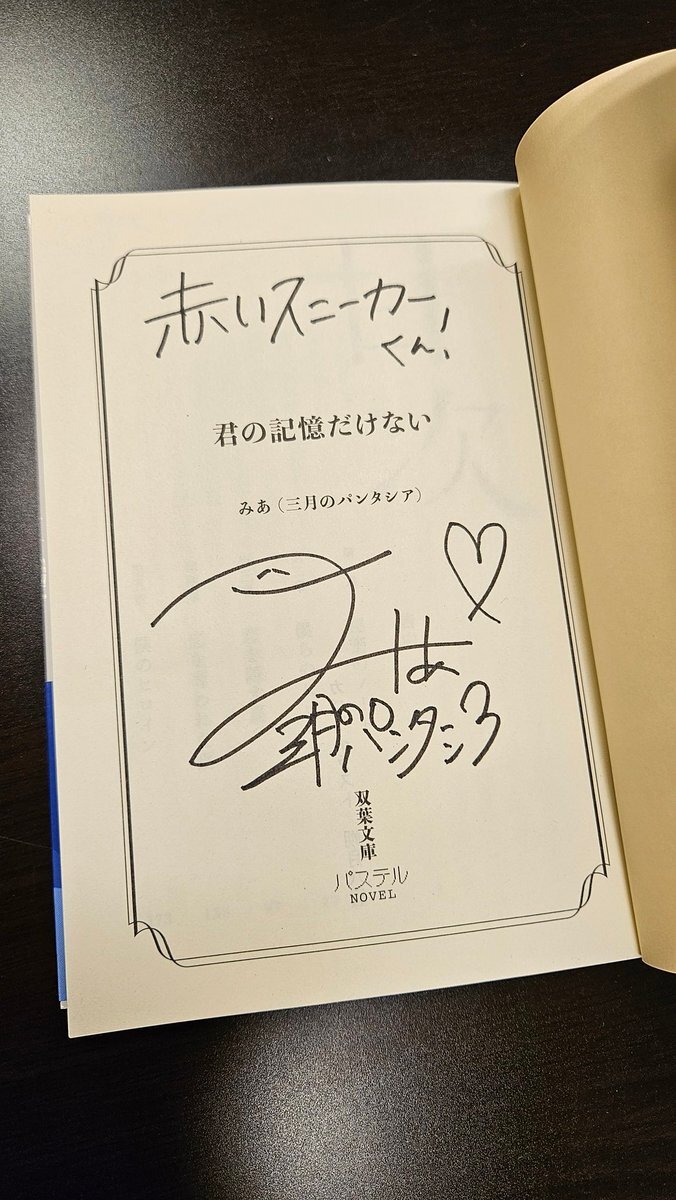 赤いスニーカー
くん!
君の記憶だけない
みあ(三月のパンタシア)
みあ
三月のパンタシア
双葉文庫
パステル
NOVEL